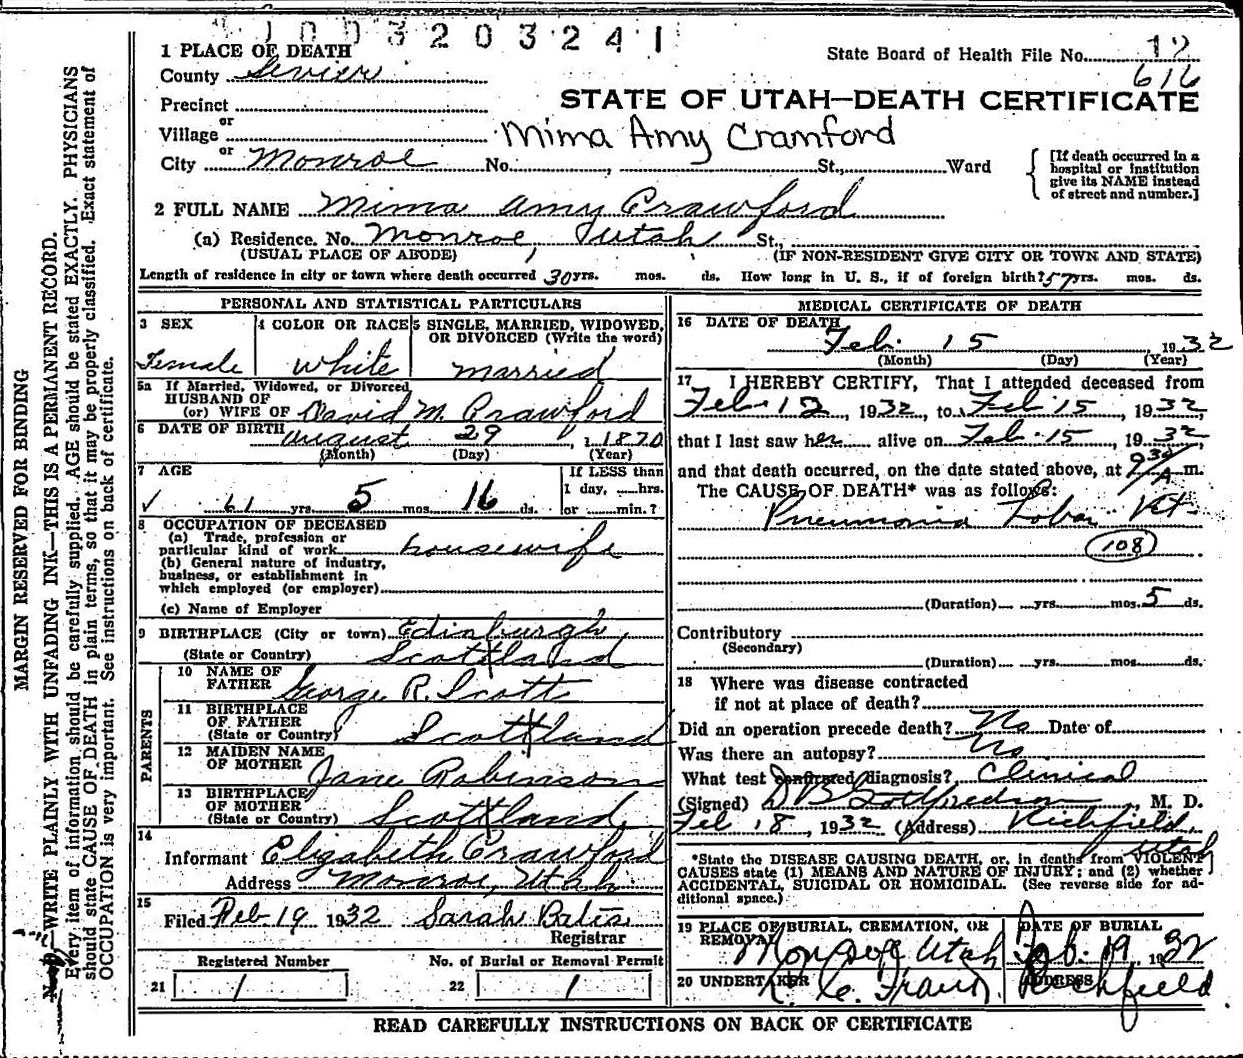 1003203241
1 PLACE OF DEATH
State Board of Health File No. 12
County Sevier
616
Precinct
STATE OF UTAH—DEATH CERTIFICATE
or
Village
Mima Amy Cramford
or
City Monroe No. , St., Ward
[If death occurred in a hospital or institution give its NAME instead of street and number.]
2 FULL NAME Mima Amy Crawford
(a) Residence. No. Monroe, Utah St.,
(USUAL PLACE OF ABODE) (IF NON-RESIDENT GIVE CITY OR TOWN AND STATE)
Length of residence in city or town where death occurred 30 yrs. mos. ds. How long in U. S., if of foreign birth? 57 yrs. mos. ds.
PERSONAL AND STATISTICAL PARTICULARS
3 SEX
Female
4 COLOR OR RACE
White
5 SINGLE, MARRIED, WIDOWED, OR DIVORCED (Write the word)
married
5a If Married, Widowed, or Divorced
HUSBAND OF
(or) WIFE OF David M. Crawford
6 DATE OF BIRTH august 29, 1870
(Month) (Day) (Year)
7 AGE
If LESS than
1 day, hrs.
61 yrs. 5 mos. 16 ds. or min.?
8 OCCUPATION OF DECEASED
(a) Trade, profession or
particular kind of work housewife
(b) General nature of industry,
business, or establishment in
which employed (or employer)
(c) Name of Employer
9 BIRTHPLACE (City or town) Edinburgh
(State or Country) Scottland
PARENTS
10 NAME OF
FATHER George R. Scott
11 BIRTHPLACE
OF FATHER
(State or Country) Scottland
12 MAIDEN NAME
OF MOTHER Jane Robinson
13 BIRTHPLACE
OF MOTHER
(State or Country) Scottland
14
Informant Elizabeth Crawford
Address Monroe, Utah
15
Filed Feb. 19 1932 Sarah Bates
Registrar
Registered Number No. of Burial or Removal Permit
21 1 22 1
MEDICAL CERTIFICATE OF DEATH
16 DATE OF DEATH
Feb. 15 1932
(Month) (Day) (Year)
17 I HEREBY CERTIFY, That I attended deceased from
Feb. 12, 1932, to Feb 15, 1932,
that I last saw her alive on Feb. 15, 1932
and that death occurred, on the date stated above, at 9 30/A m.
The CAUSE OF DEATH* was as follows:
Pneumonia Lobar
108
(Duration) yrs. mos. 5 ds.
Contributory
(Secondary)
(Duration) yrs. mos. ds.
18 Where was disease contracted
if not at place of death?
Did an operation precede death? No Date of
Was there an autopsy? No
What test confirmed diagnosis? Clinical
(Signed) D B Gottfredson, M. D.
Feb 18, 1932 (Address) Richfield,
Utah
*State the DISEASE CAUSING DEATH, or, in deaths from VIOLENT
CAUSES state (1) MEANS AND NATURE OF INJURY; and (2) whether
ACCIDENTAL, SUICIDAL OR HOMICIDAL. (See reverse side for ad-
ditional space.)
19 PLACE OF BURIAL, CREMATION, OR
REMOVAL
Monroe Utah
DATE OF BURIAL
Feb. 19, 1932
20 UNDERTAKER
ADDRESS
Richfield
READ CAREFULLY INSTRUCTIONS ON BACK OF CERTIFICATE
MARGIN RESERVED FOR BINDING
—WRITE PLAINLY WITH UNFADING INK—THIS IS A PERMANENT RECORD.
Every item of information should be carefully supplied. AGE should be stated EXACTLY. PHYSICIANS
should state CAUSE OF DEATH in plain terms, so that it may be properly classified. Exact statement of
OCCUPATION is very important. See instructions on back of certificate.